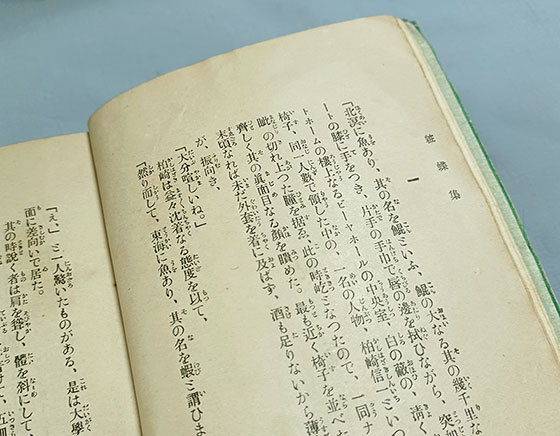 一
「北溟に魚あり、其の名を鯤といふ、鯤の大なる其の幾千里な
ートの膝に手をつき、片手の手巾で唇の邊を拭ひながら、突如
トホームの樓上なるビーヤホールの中央室、白の蔽の、淸く
椅子、同一人數で領した中の、一名の人物、柏崎信
眦の切れ上つた瞳を据ゑ、此の時屹となつたので、一同ナ
齊しく其の眞面目なる顏を瞶めた。最も近く椅子を並べた
末頃なれば未だ外套を着に及ばず、酒も足りないから薄
が、振向き、
「大分喰しいね。」
柏崎は益々沈着なる態度を以て、
「然り而して、東海に魚あり、其の名を鰕と謂ひま
「えゝ」と一人驚いたものがある、是は大學
面に差向いで居た。
其の時說く者は肩を聳し、體を斜にして、